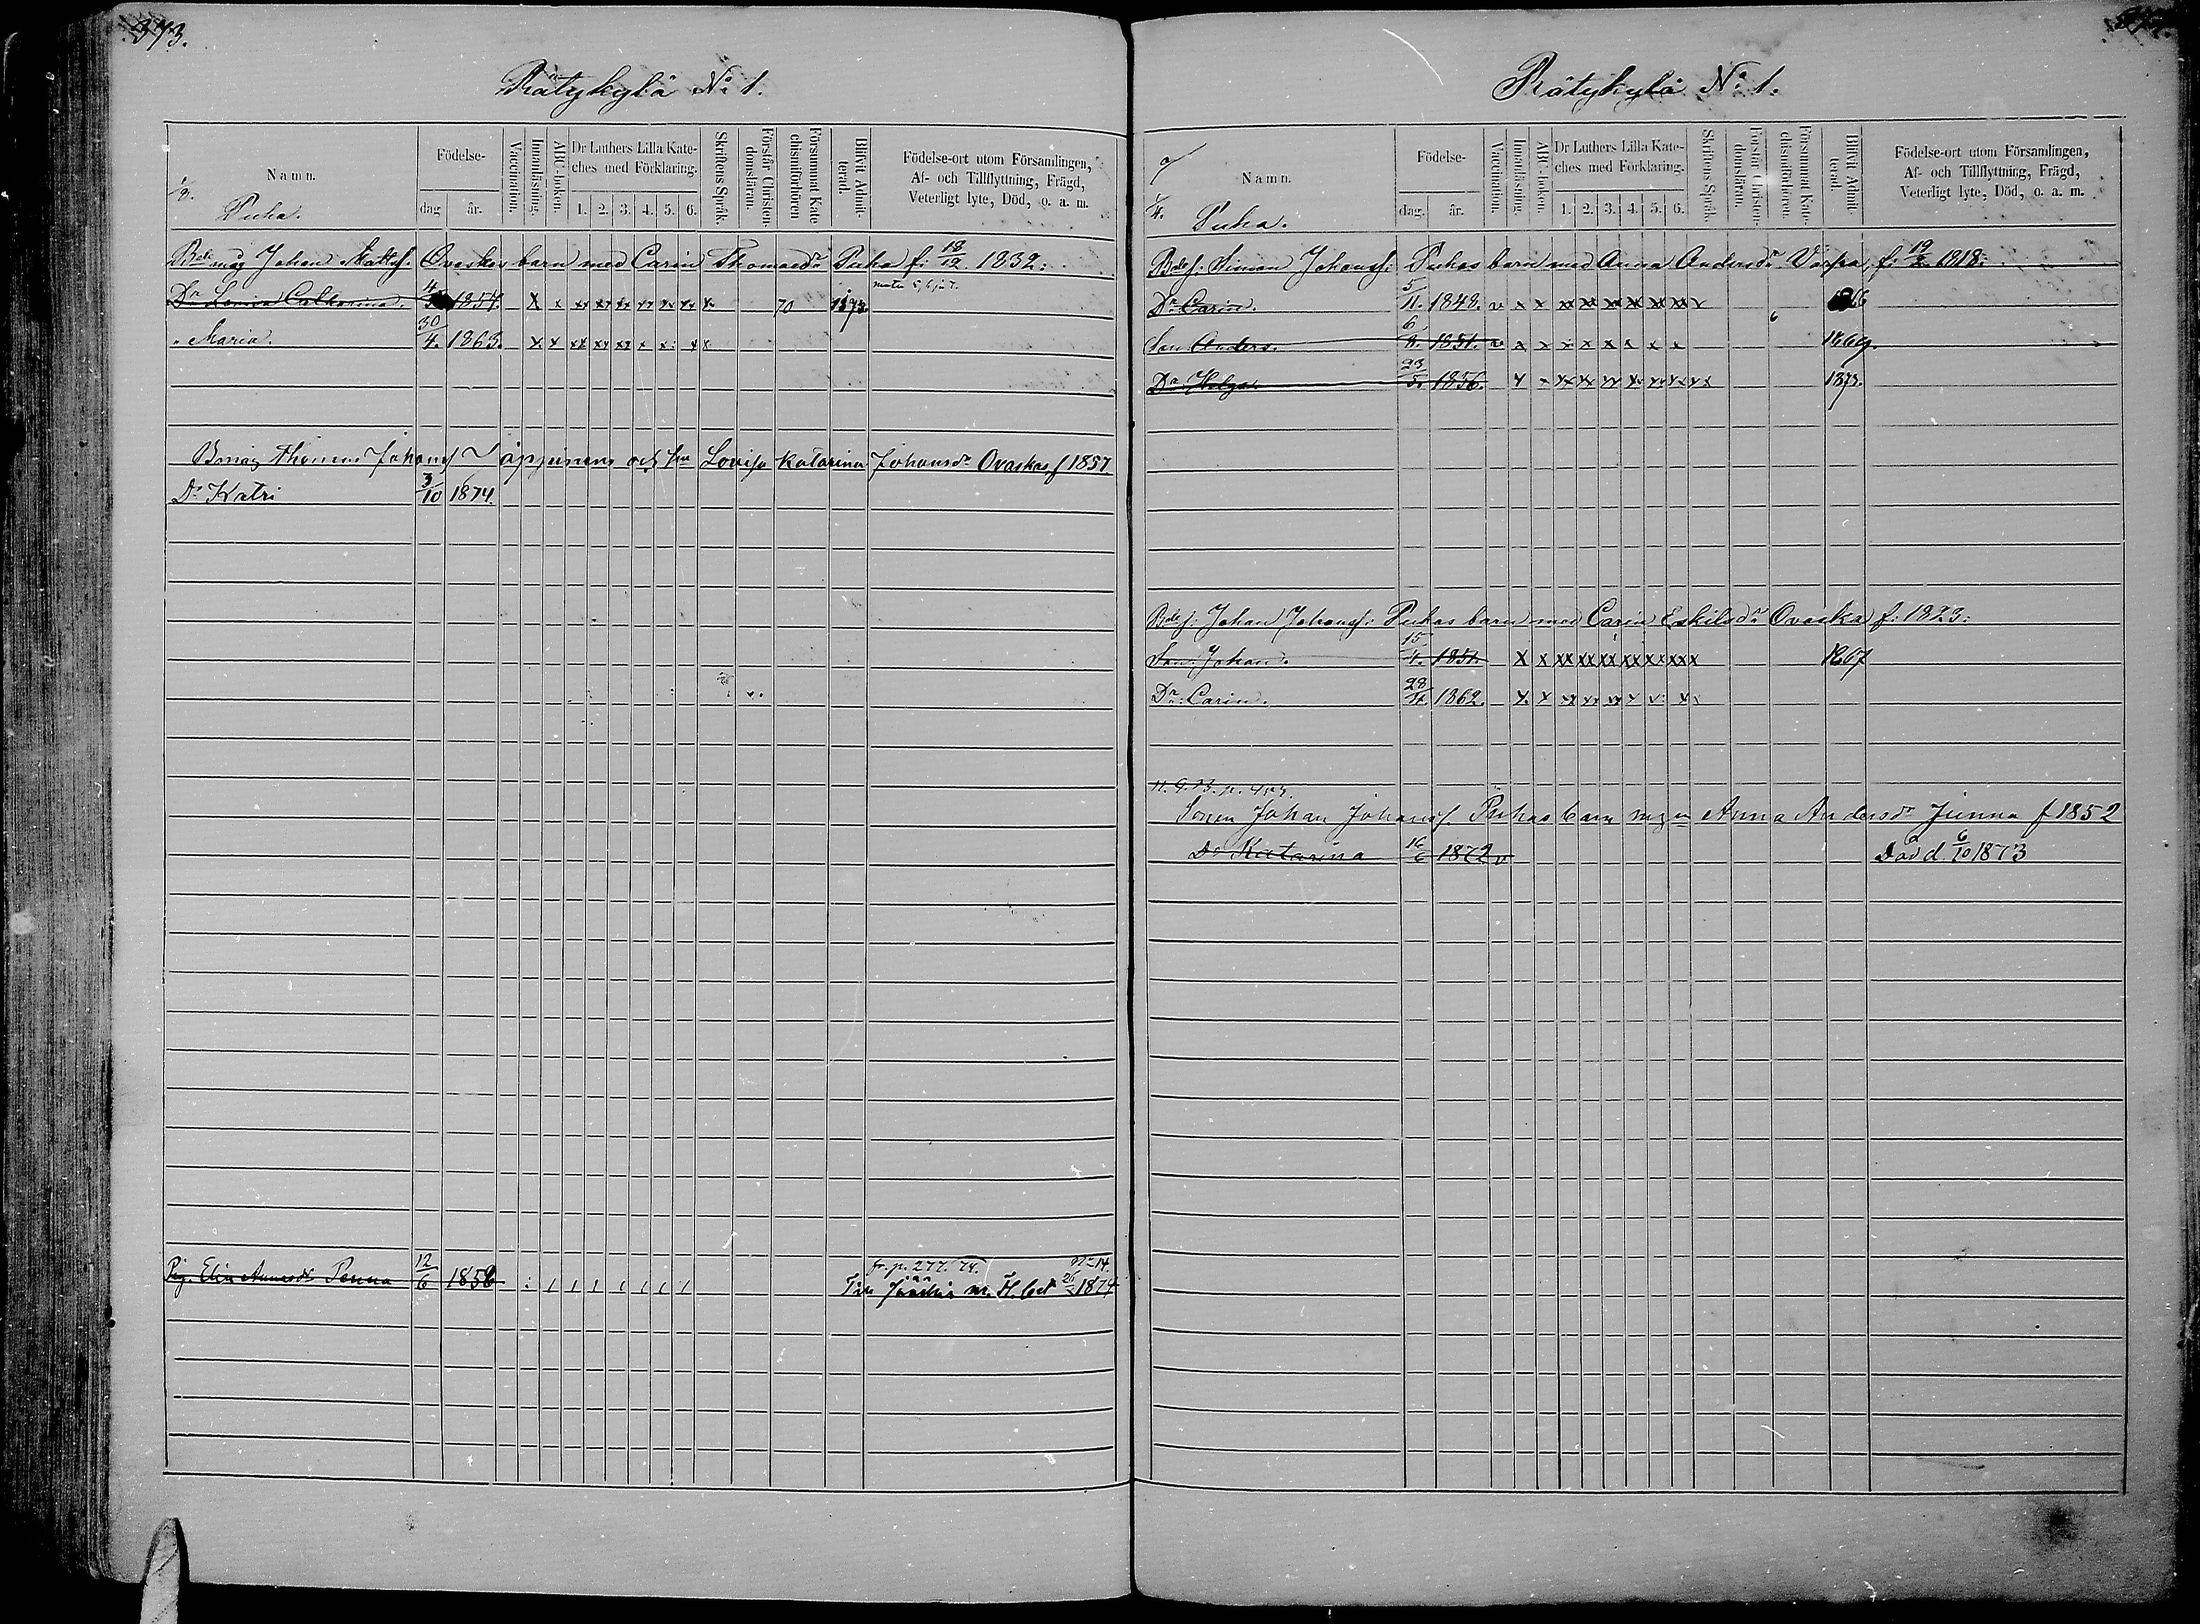 373.
Rätykylä No 1.
Namn.
Födelse-
dag
år.
Vaccination.
Innanläsning.
ABC-boken.
Dr Luthers Lilla Kate-
ches med Förklaring.
1. 2. 3. 4. 5. 6.
Skriftens Språk.
Förstår Christen-
domsläran.
Försummat Kate
chismiförhören
Blifvit Admit-
terad.
Födelse-ort utom Församlingen,
Af- och Tillflyttning, Frägd,
Veterligt lyte, Död, o. a. m.
Puha.
Bde måg Johan Mattsf. Ovaskas barn med Carin Thomasdr Puha f: 18/12 1832:
Dr Lovisa Catharina. 4 1857 x x xx xx xx xx xx xx x 70 1873
" Maria. 30/4. 1863. x x xx xx xx x x x x
Bmåg Thomas Johansf Täppinens och hu Lovisa Katarina Johansdr Ovaskas f 1857
Dr Katri 3/10 1874
Pig. Elin Penna 12/6 1856
fr. p. 277. 74. No 14.
Till Jääskis m. Fl. bet 26 1874
Rätykylä No 1.
Namn.
Födelse-
dag.
år.
Vaccination.
Innanläsning.
ABC-boken.
Dr Luthers Lilla Kate-
ches med Förklaring.
1. 2. 3. 4. 5. 6.
Skriftens Språk.
Förstår Christen-
domsläran.
Försummat Kate-
chismiförhören.
Blifvit Admit-
terad.
Födelse-ort utom Församlingen,
Af- och Tillflyttning, Frägd,
Veterligt lyte, Död, o. a. m.
Puha.
Bdes: Simon Johansf: Puhas barn med Anna Andersdr Varpa, f: 19/2 1818:
Dr Carin. 5/11. 1848. v x x xx xx xx xx xx xx x
Son Anders. 6/8. 1851. v x x x x x x x x 1869.
Dr Helga 23/5. 1856. x x xx xx xx xx xx xx x 1873.
Bdes: Johan Johansf: Puhas barn med Carin Eskilsdr Ovaska f: 1823:
Son: Johan. 15/4. 1851. x x xx xx xx xx xx xx x 1867
Dr: Carin. 28 1862. x x xx xx xx x x x x
Sonen Johan Johansf. Puhas barn m Anna Andersdr Junna f 1852
Dr Katarina 16/6 1872 v Död d. 6/10 1873